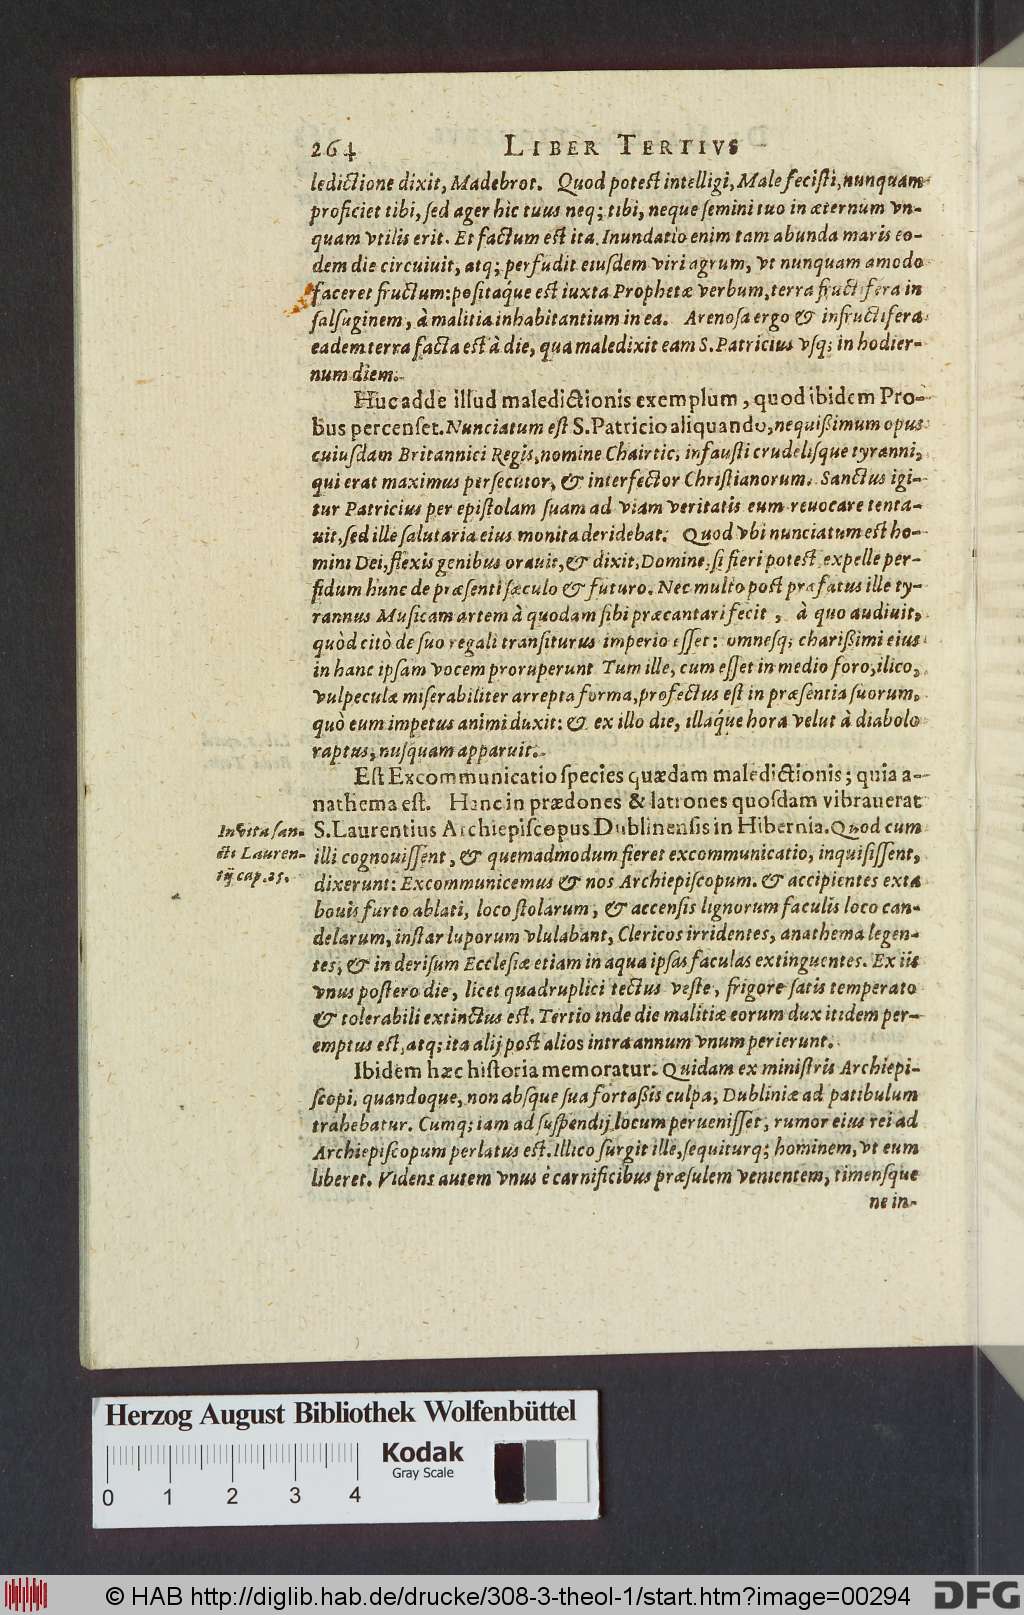 264 LIBER TERTIVS
ledictione dixit, Madebrot. Quod potest intelligi, Male fecisti, nunquam
proficiet tibi, sed ager hic tuus neq; tibi, neque semini tuo in æternum vn-
quam vtilis erit. Et factum est ita. Inundatio enim tam abunda maris eo-
dem die circuiuit, atq; perfudit eiusdem viri agrum, vt nunquam amodo
faceret fructum: positaq́ue est iuxta Prophetæ verbum, terra fructifera in
salsuginem, à malitia inhabitantium in ea. Arenosa ergo & infructifera
eadem terra facta est à die, qua maledixit eam S. Patricius vsq; in hodier-
num diem.
Huc adde illud maledictionis exemplum, quod ibidem Pro-
bus percenset. Nunciatum est S. Patricio aliquando, nequißimum opus
cuiusdam Britannici Regis, nomine Chairtic, infausti crudelisque tyranni,
qui erat maximus persecutor, & interfector Christianorum. Sanctus igi-
tur Patricius per epistolam suam ad viam veritatis eum reuocare tenta-
uit, sed ille salutaria eius monita deridebat. Quod vbi nunciatum est ho-
mini Dei, flexis genibus orauit, & dixit, Domine, si fieri potest expelle per-
fidum hunc de præsenti sæculo & futuro. Nec multo post præfatus ille ty-
rannus Musicam artem à quodam sibi præcantari fecit, à quo audiuit,
quòd citò de suo regali transiturus imperio esset: omnesq; charißimi eius
in hanc ipsam vocem proruperunt Tum ille, cum esset in medio foro, ilico,
vulpeculæ miserabiliter arrepta forma, profectus est in præsentia suorum,
quò eum impetus animi duxit: & ex illo die, illaq́ue hora velut à diabolo
raptus, nusquam apparuit.
Est Excommunicatio species quædam maledictionis; quia a-
nathema est. Hanc in prædones & latrones quosdam vibrauerat
S. Laurentius Archiepiscopus Dublinensis in Hibernia. Quod cum
In vita san-
cti Lauren-
tij cap. 25.
illi cognouissent, & quemadmodum fieret excommunicatio, inquisissent,
dixerunt: Excommunicemus & nos Archiepiscopum. & accipientes exta
bouis furto ablati, loco stolarum, & accensis lignorum faculis loco can-
delarum, instar luporum vlulabant, Clericos irridentes, anathema legen-
tes, & in derisum Ecclesiæ etiam in aqua ipsas faculas extinguentes. Ex iis
vnus postero die, licet quadruplici tectus veste, frigore satis temperato
& tolerabili extinctus est. Tertio inde die malitiæ eorum dux itidem per-
emptus est, atq; ita alij post alios intra annum vnum perierunt.
Ibidem hæc historia memoratur. Quidam ex ministris Archiepi-
scopi, quandoque, non absque sua fortaßis culpa, Dubliniæ ad patibulum
trahebatur. Cumq; iam ad suspendij locum peruenisset, rumor eius rei ad
Archiepiscopum perlatus est. Illico surgit ille, sequiturq; hominem, vt eum
liberet. Videns autem vnus è carnificibus præsulem venientem, timensque
ne in-
Herzog August Bibliothek Wolfenbüttel
Kodak
Gray Scale
0 1 2 3 4
© HAB http://diglib.hab.de/drucke/308-3-theol-1/start.htm?image=00294
DFG